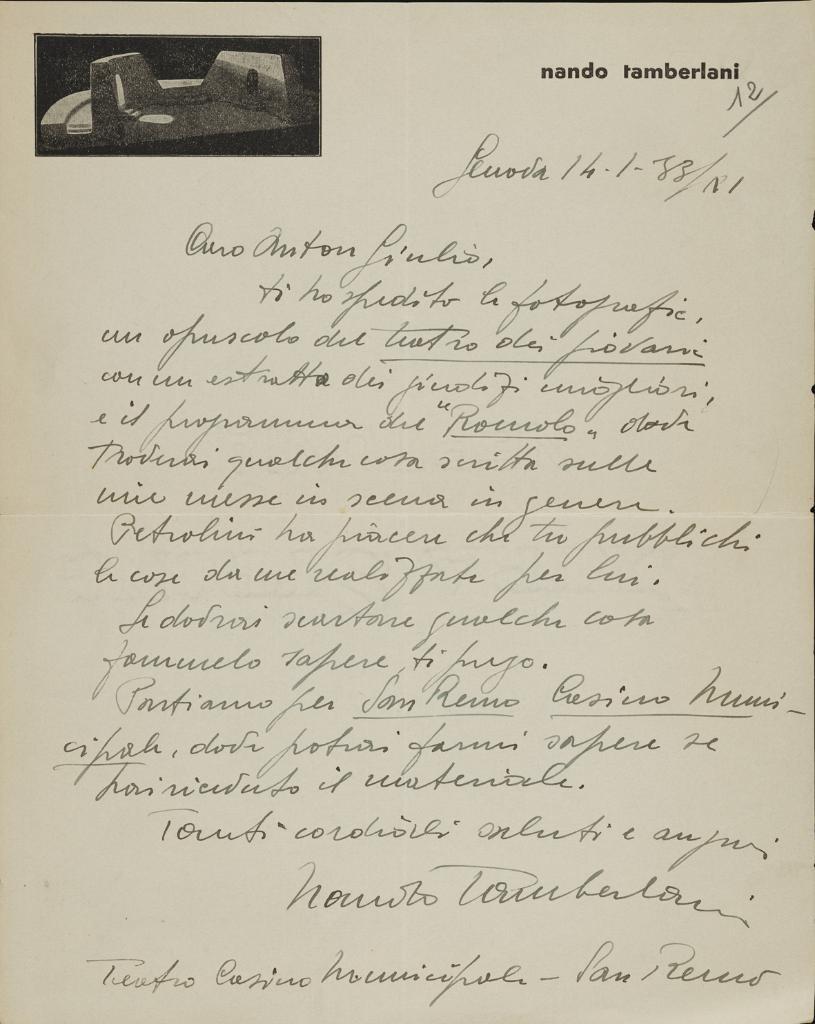 nando tamberlani
12/
Genova 14-1-33/21
Caro Anton Giulio,
ti ho spedito le fotografie,
un opuscolo del teatro dei giovani
con un estratto dei giudizi migliori,
e il programma del "Romolo" dove
troverai qualche cosa scritta sulle
mie messe in scena in genere.
Petrolini ha piacere che tu pubblichi
le cose da me realizzate per lui.
Se dovrai scartare qualche cosa
fammelo sapere, ti prego.
Partiamo per San Remo Casino Muni-
cipale, dove potrai farmi sapere se
hai ricevuto il materiale.
Tanti cordiali saluti e auguri
Nando Tamberlani
Teatro Casino Municipale - San Remo